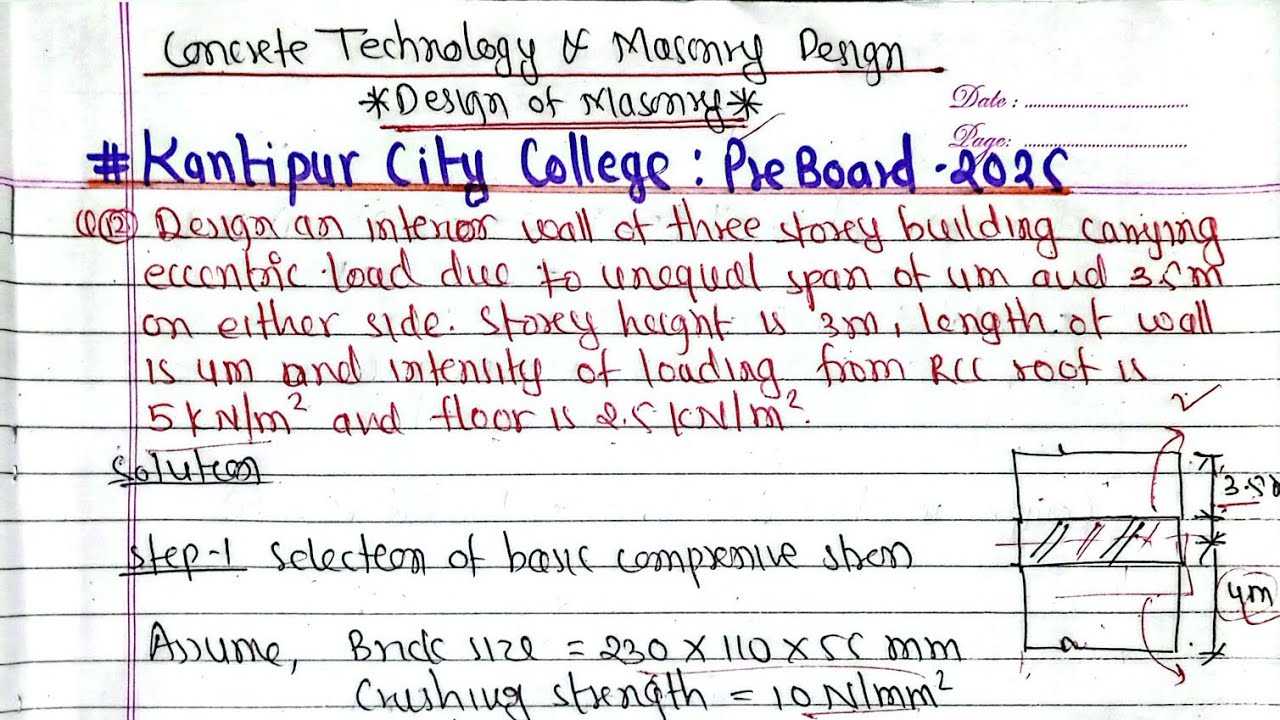 Concrete Technology & Masonry Design
*Design of Masonry*
Date :
Page:
# Kantipur City College : PreBoard -2025
Q(12) Design an interior wall of three storey building carrying
eccentric load due to unequal span of 4m and 3.5m
on either side. Storey height is 3m, length of wall
is 4m and intensity of loading from RCC roof is
5 KN/m² and floor is 2.5 KN/m².
Solution
3.5
Step-1 Selection of basic compressive stress
4m
Assume, Brick size = 230 × 110 × 55 mm
Crushing strength = 10 N/mm²